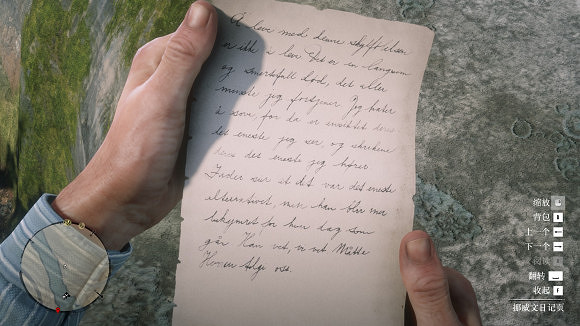 Å leve med denne skyldfølelsen
er ikke å leve Det er en langsom
og smertefull død, det aller
minste jeg fortjener Jeg hater
å sove, for da er ansiktet deres
det eneste jeg ser, og skrikene
deres det eneste jeg hører
Fader sier at det var det eneste
alternativet, men han blir mer
bekymret for hver dag som
går Han vet, vi vet Måtte
Herren tilgi oss.
缩放
背包
上一个
下一个
阅读
翻转
收起 F
挪威文日记页